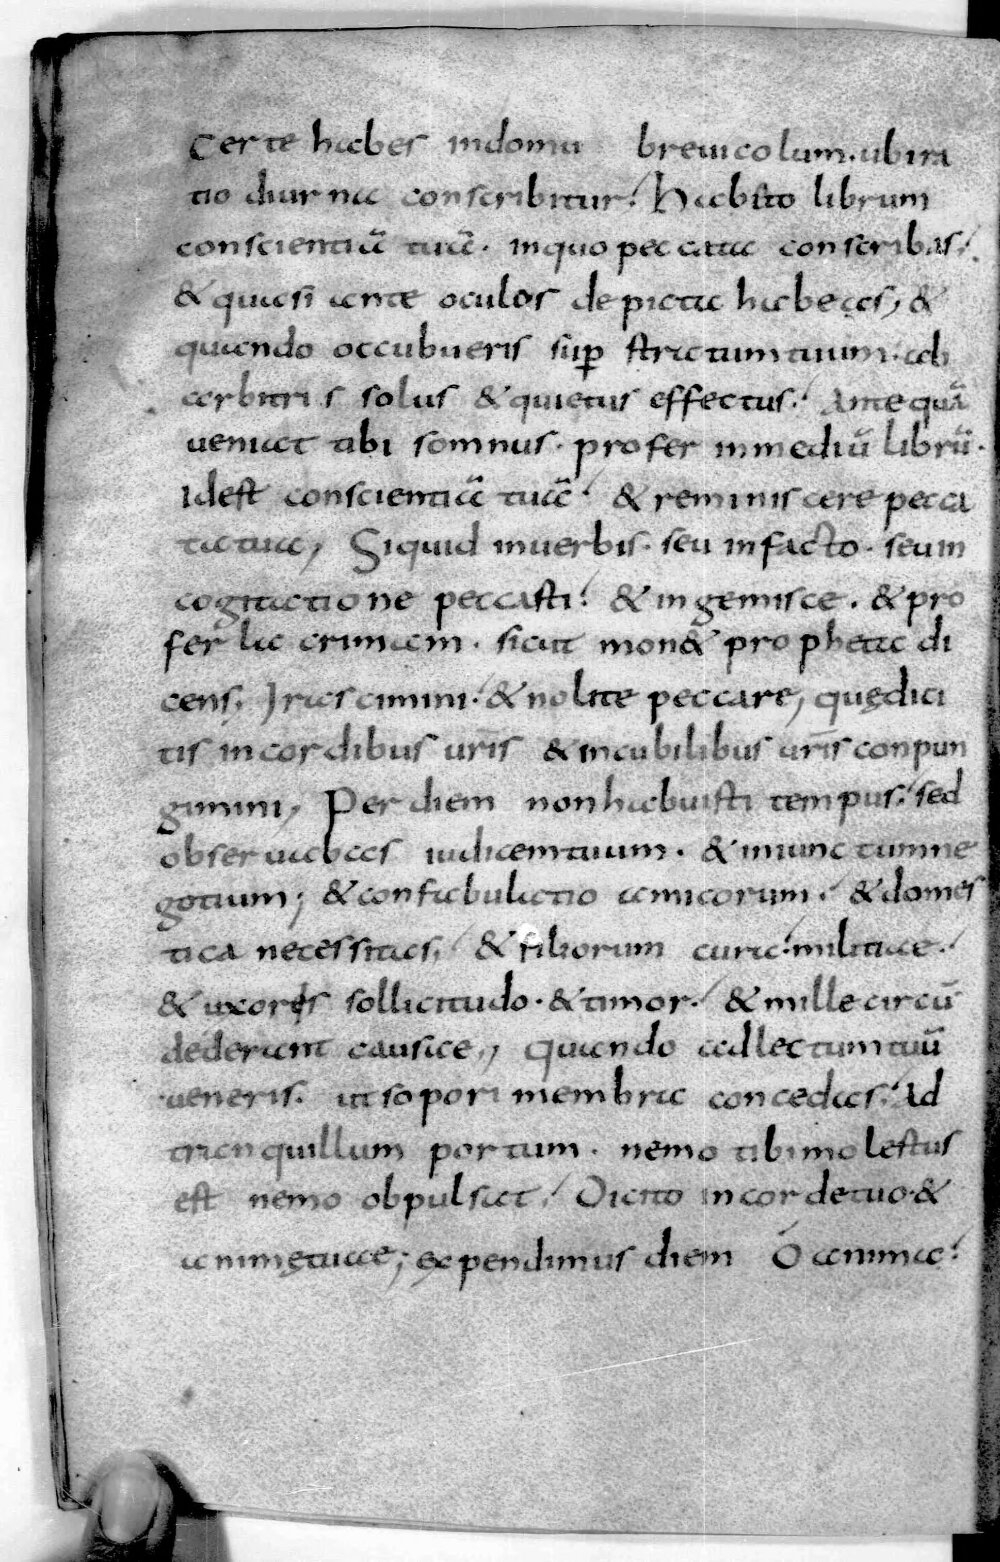 Certe habes indomu breuicolum. ubira
tio diurna conscribitur. Habito librum
conscientiã tuã. inquo peccata conscribas.
& quasi ante oculos depicta habeas, &
quando occubueris sup̄ stratumtuum. ab
arbitris solus & quietus effectus. Antequã
ueniat tibi somnus. profer inmediũ librũ.
idest conscientiã tuã. & reminiscere pecca
tatua, Siquid inuerbis. seu infacto. seuin
cogitatione peccasti. & ingemisce. & pro
fer lacrimam. sicut mon& propheta di
cens, Irascimini. & nolite peccare, quędici
tis incordibus ur̄is & incubilibus ur̄is conpun
gimini, Per diem nonhabuisti tempus. sed
obseruabas iudicemtuum. & iniunctumne
gotium; & confabulatio amicorum. & domes
tica necessitas, & filiorum cura. militiae.
& uxores sollicitudo. & timor. & mille circũ
dederant causae,, quando adlectumtuũ
ueneris. ut sopori membra concedas. Ad
tranquillum portum. nemo tibimolestus
est nemo obpulsat, Dicito incordetuo. &
animętuae; expendimus diem Ó anima.